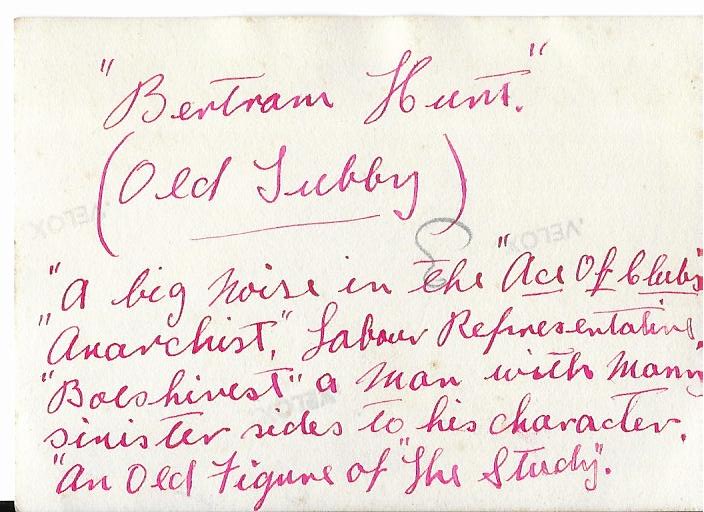 "Bertram Hunt."
(Old Tubby)
VELOX
VELOX
"A big Noise in the "Ace Of Clubs
"Anarchist," Labour Representative
"Bolshivest" a Man with Many
VELOX
sinister sides to his character.
"An Old Figure of "The Study".